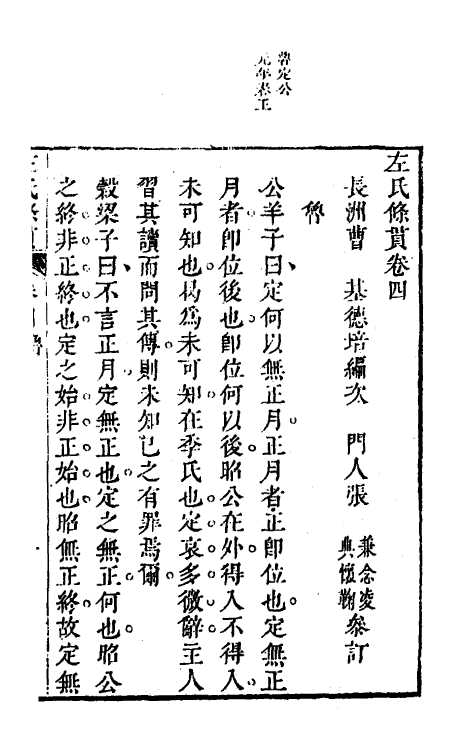 魯定公
元年春王
左氏條貫卷四
長洲曹　基德培編次　門人張　兼念凌　典懷鞠　叅訂
魯
公羊子曰定何以無正月正月者正卽位也定無正
月者卽位後也卽位何以後昭公在外得入不得入
未可知也曷爲未可知在季氏也定哀多微辭主人
習其讀而問其傳則未知已之有罪焉爾
穀梁子曰不言正月定無正也定之無正何也昭公
之終非正終也定之始非正始也昭無正終故定無
左氏條貫　卷四魯